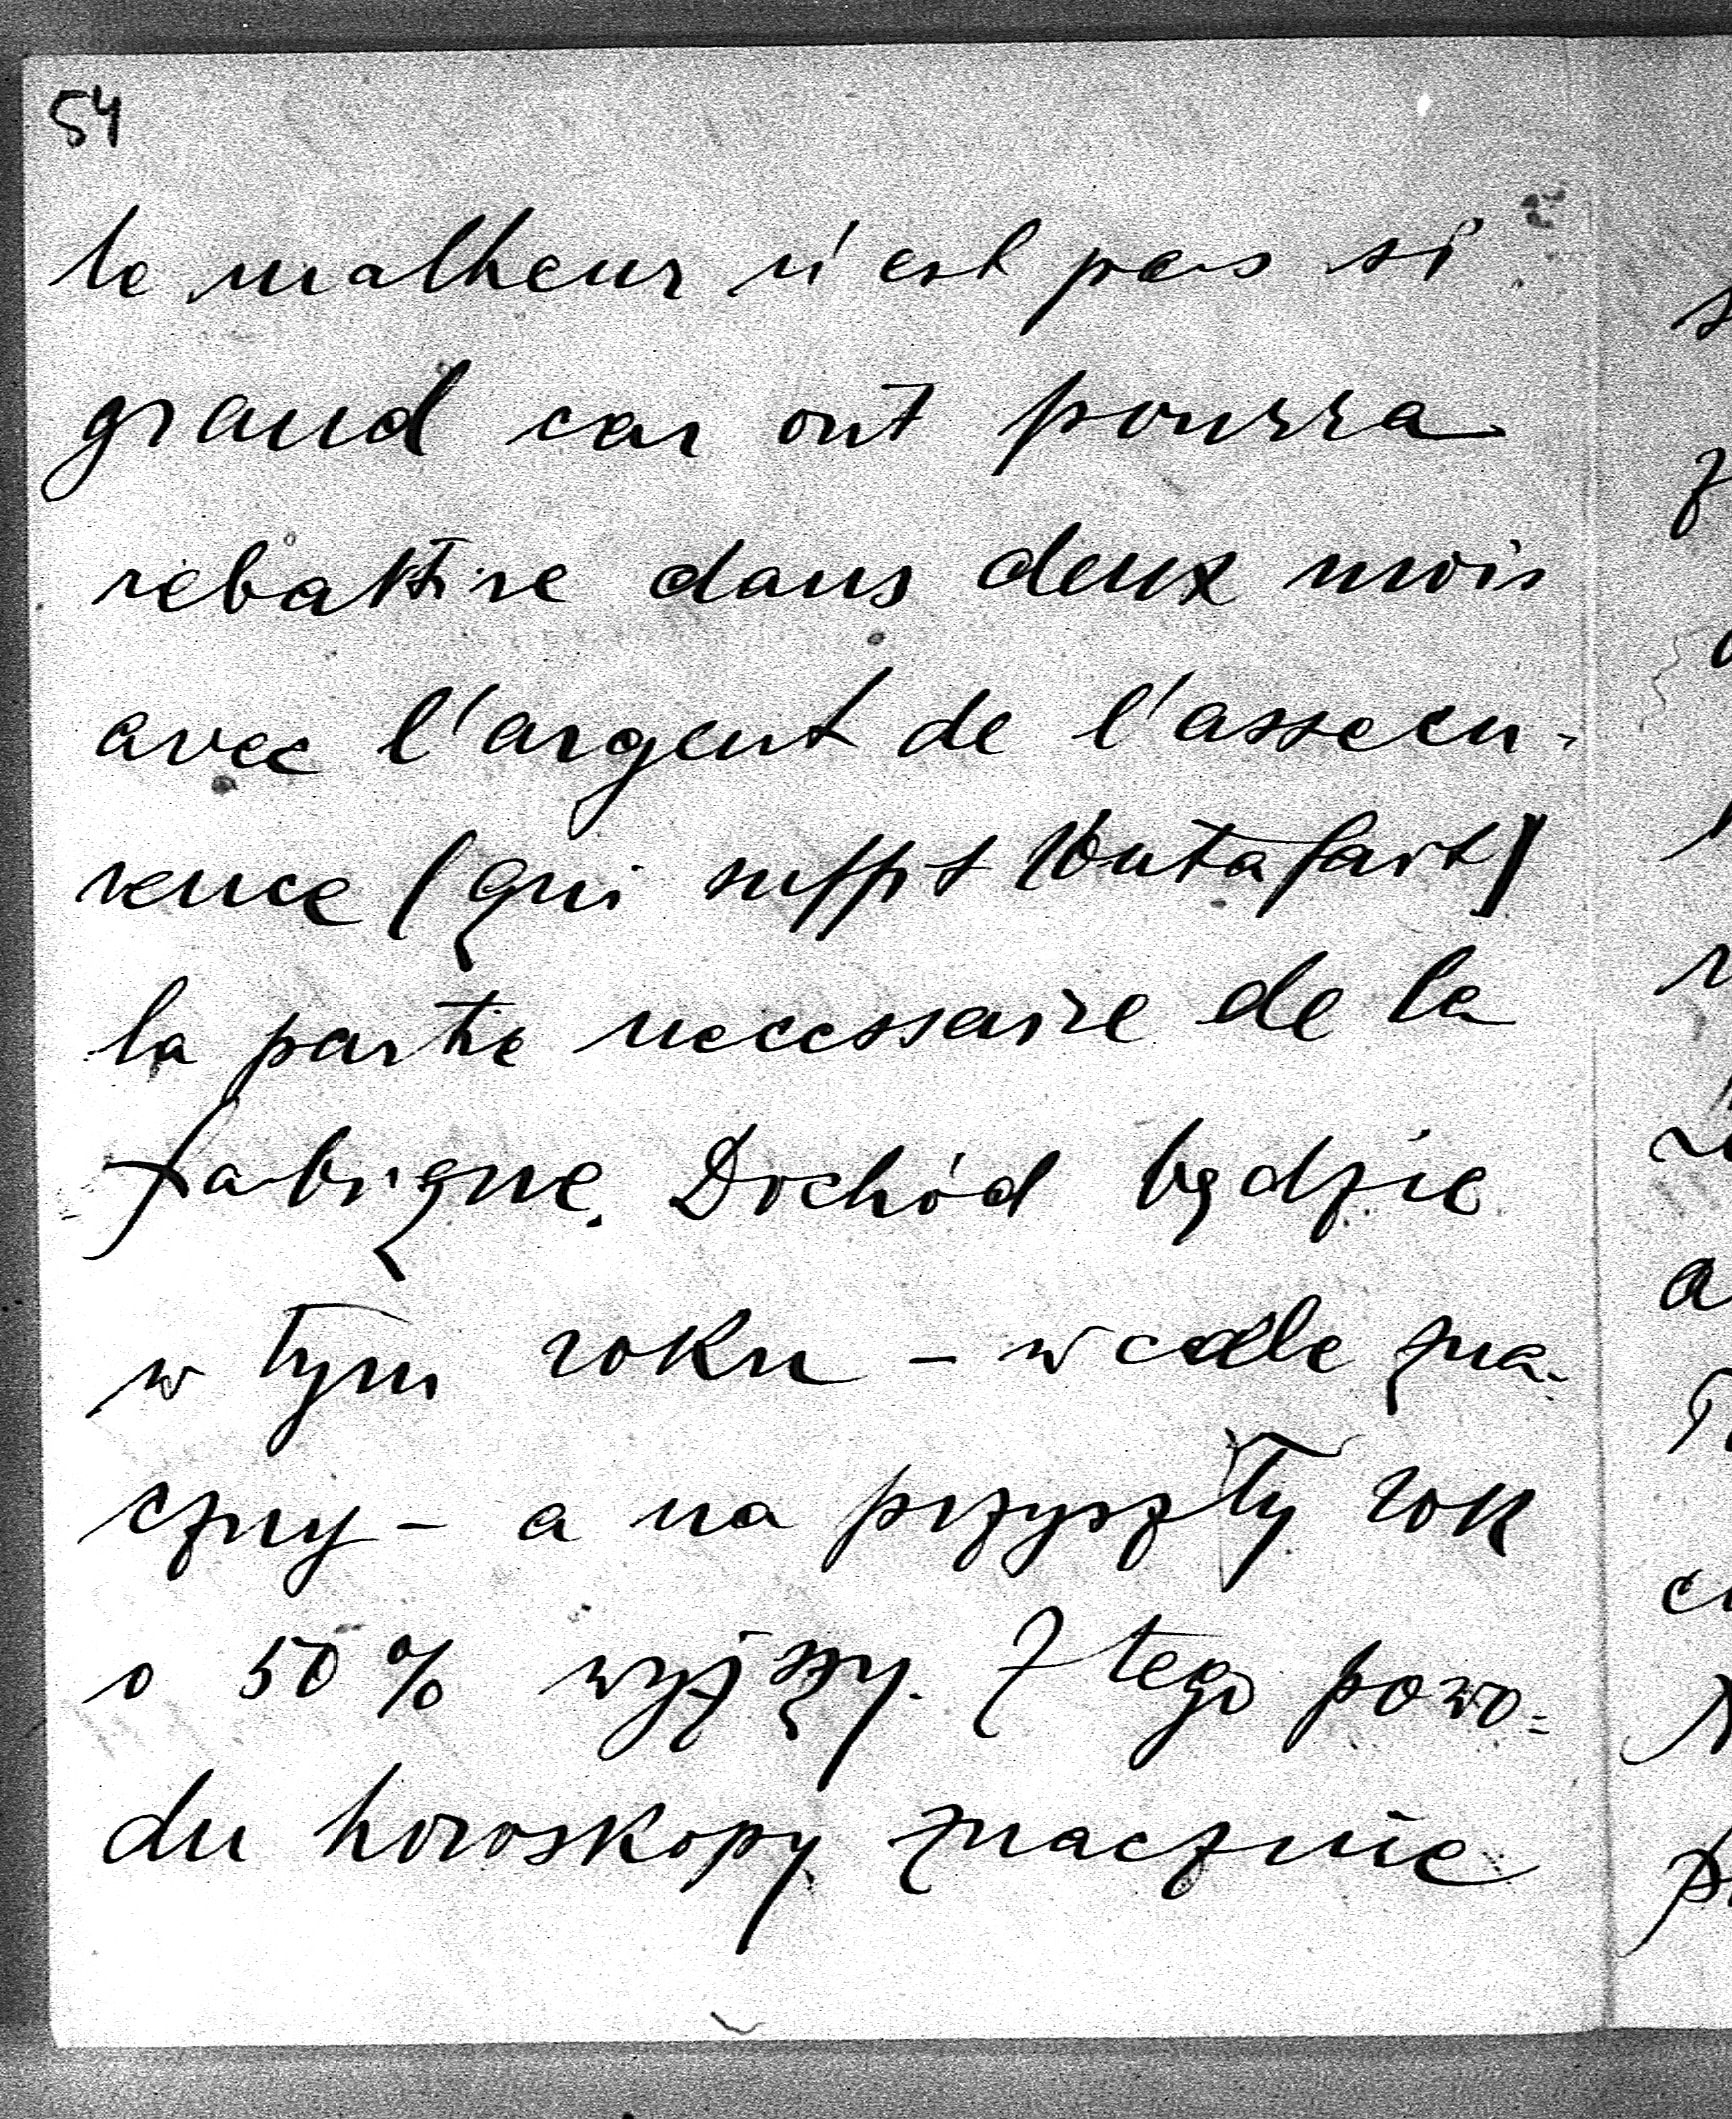 54
le malheur n'est pas si
grand car ont pourra
rebattire dans deux mois
avec l'argent de l'assecu-
rence (qui suffit toutafait)
la partie necessaire de la
fabrique. Dochód będzie
w tym roku – wcale zna-
czny – a na przyszły rok
o 50% wyższy. Z tego powo=
du horoskopy znacznie